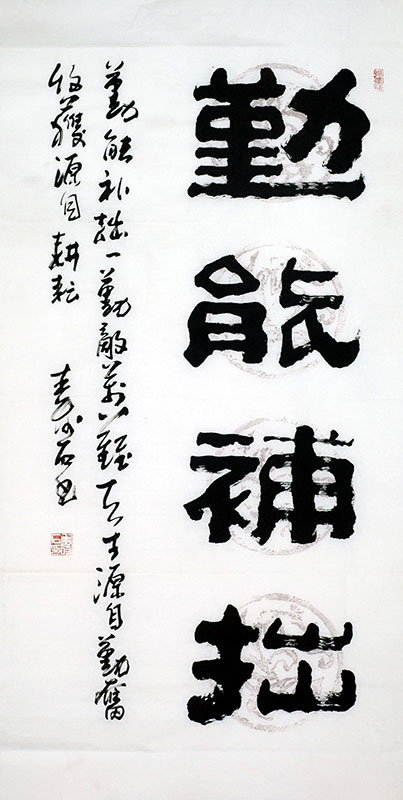 勤能補拙
勤能补拙一勤敵萬難天才源自勤奮
收獲源自耕耘
石書